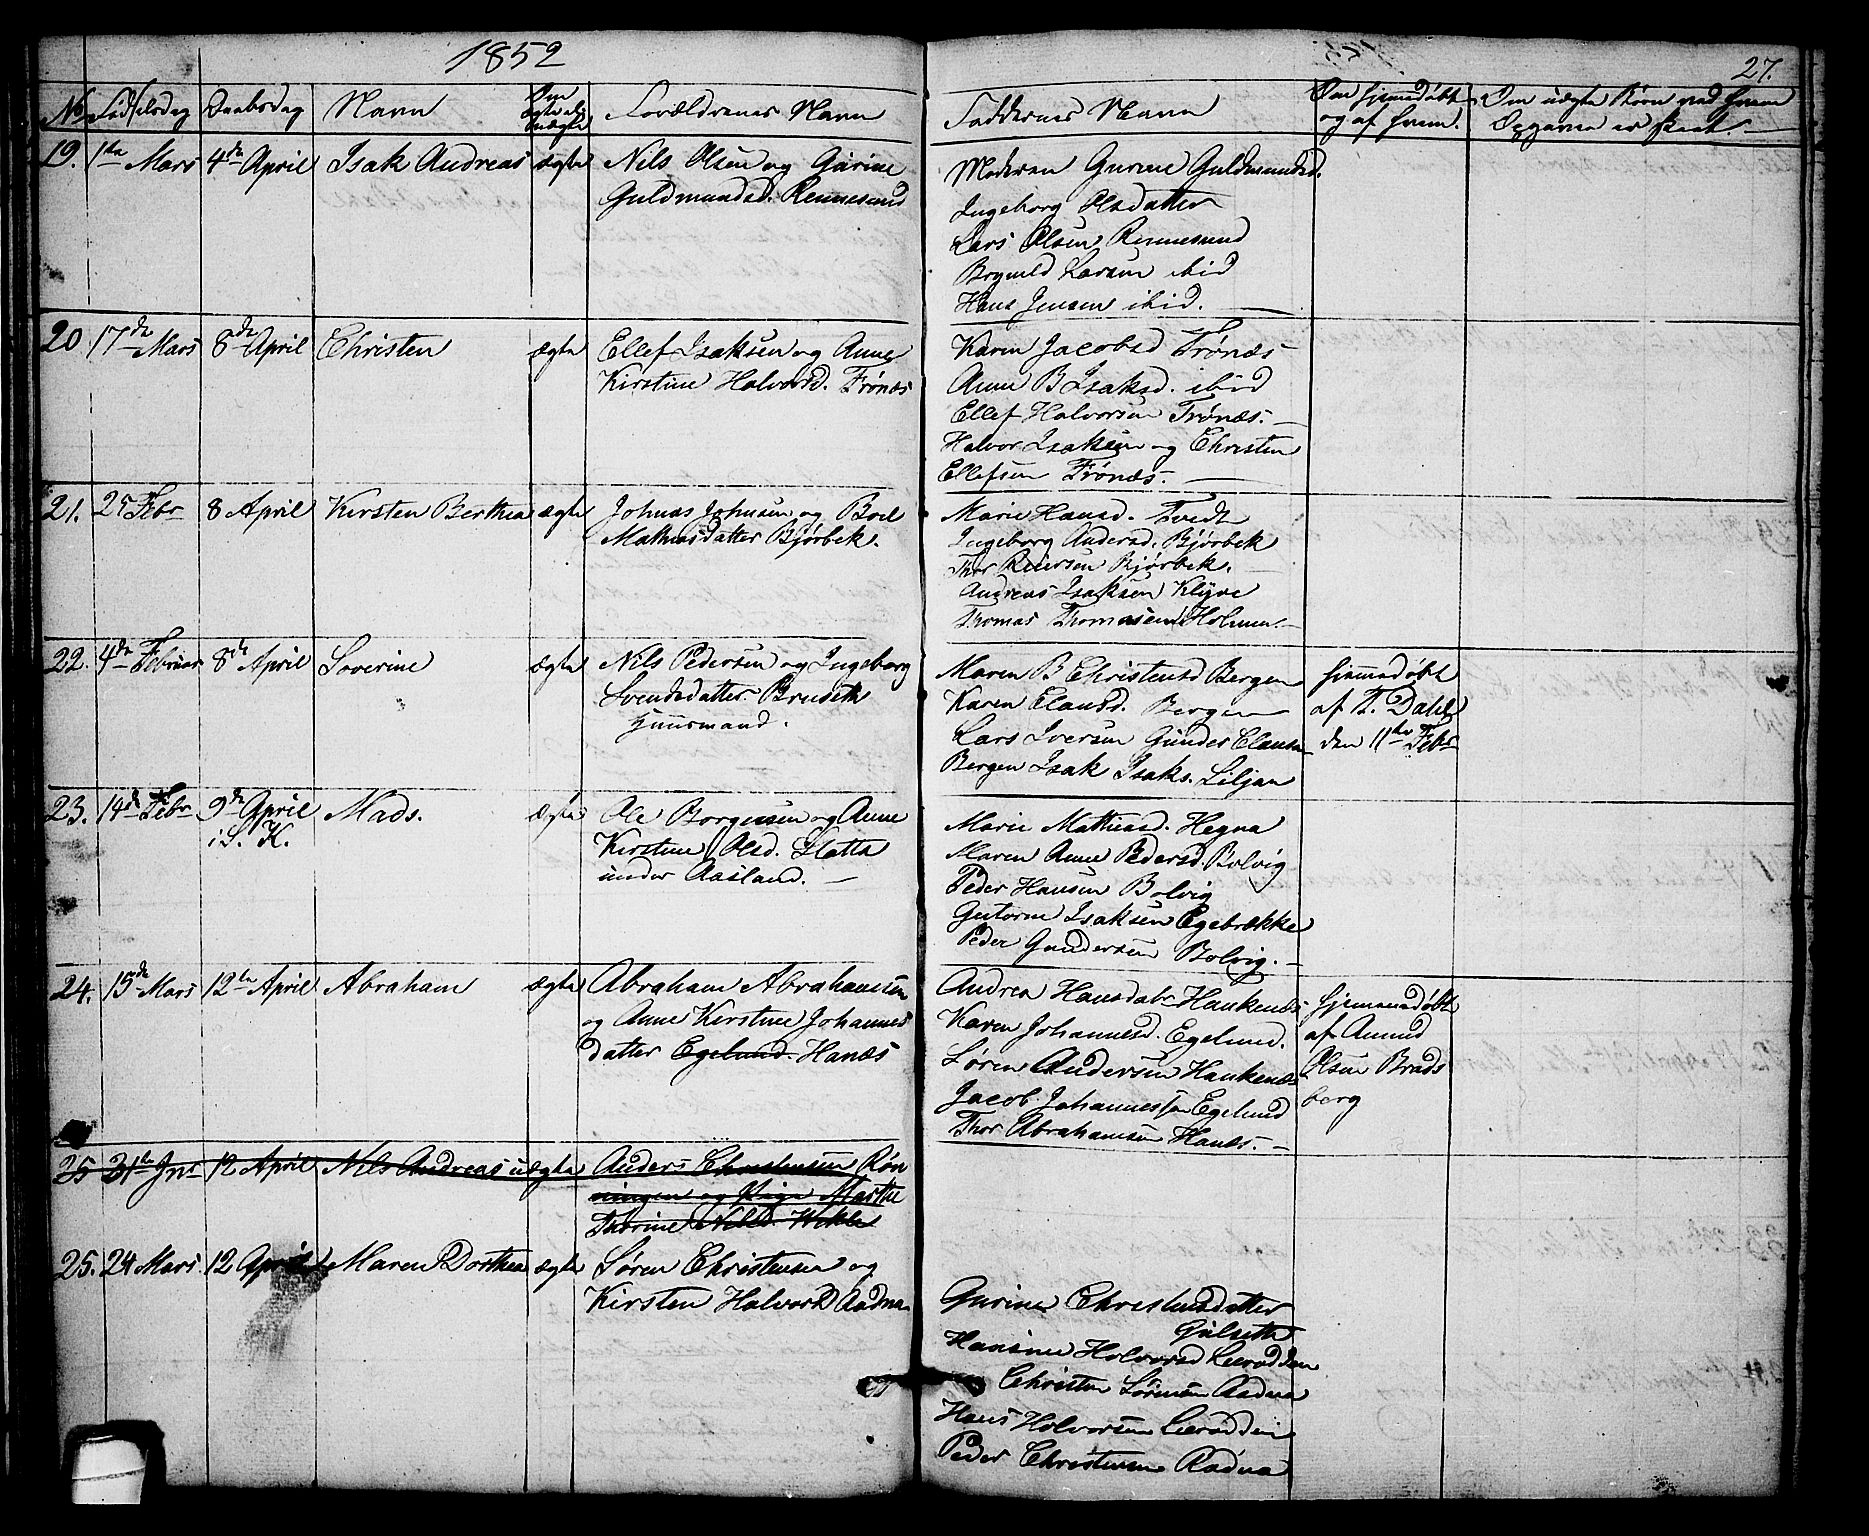 1852
27.
No Fødselsdag Daabsdag Navn Om ægte el. uægte Forældrenes Navn Faddernes Navn Om hjemmedøbt og af hvem. Om uægte Børn ved hvem Opgaven er skeet
19. 1te Mars 4de April Isak Andreas ægte Nils Olsen og Gurine
Guldmundsd. Rennesund
Moderen Gurine Guldmundsd.
Ingeborg Olsdatter
Lars Olsen Rennesund
Brynild Larsen ibid
Hans Jensen ibid.
20 17de Mars 8de April Christen ægte Ellef Isaksen og Anne
Kirstine Halvorsd. Trónæs
Karen Jacobsd Trónæs
Anne B Isaksd. ibid
Ellef Halvorsen Trónæs.
Halvor Isaksen og Christen
Ellefsen Trónæs.
21. 25 Febr 8 April Kirsten Berthea ægte Johnas Johnsen og Boel
Mathiasdatter Bjørbek.
Marie Hansd. Tvedt
Ingeborg Andersd. Bjørbek
Thor Reiersen Bjørbek.
Andreas Isaksen Klyve
Thomas Thomasen Holmen.
22. 4de Februar 8de April Severine ægte Nils Pedersen og Ingeborg
Svendsdatter Bruseth
Huusmand.
Maren B Christensd Bergen
Karen Clausd. Bergen
Lars Iversen Gunder Clausen
Bergen Isak Isaks. Liljan
hjemmedøbt
af T. Dahl
den 11te Febr
23. 14de Febr 9de April Mads. ægte Ole Borgersen og Anne
i S. K.
Kirstine Olsd. Sletta
under Aasland.
Marie Mathiasd. Hegna
Maren Anne Pedersd. Bolvig
Peder Hansen Bolvig
Gutorm Isaksen Egebrække
Peder Gundersen Bolvig.
24. 15de Mars 12te April Abraham ægte Abraham Abrahamsen
og Anne Kirstine Johannes
datter Egelund. Hanæs
Andrea Hansdatr Haukenæs
Karen Johannesd. Egelund.
Søren Andersen Haukenæs
Jacob Johannessen Egelund
Thor Abrahamsen Hanæs.
hjemmedøbt
af Amund
Olsen Brads
berg
25 31te Jnr 12 April Nils Andreas uægte Anders Christensen Røn
ningen og Pige Marthe
Thorine Nilsd.
25. 24 Mars 12 April Maren Dorthea ægte Søren Christensen og
Kirsten Halvorsd Aadna
Gurine Christensdatter
Gulseth
Hansine Halvorsd Lerodden
Christen Sørensen Aadna
Hans Halvorsen Lerodden
Peder Christensen Aadna